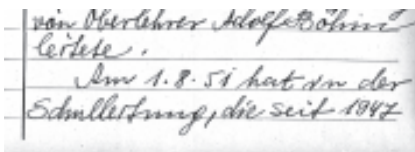 von Oberlehrer Adolf Böhm
leitete.
Am 1.8.51 hat in der
Schulleitung, die seit 1947